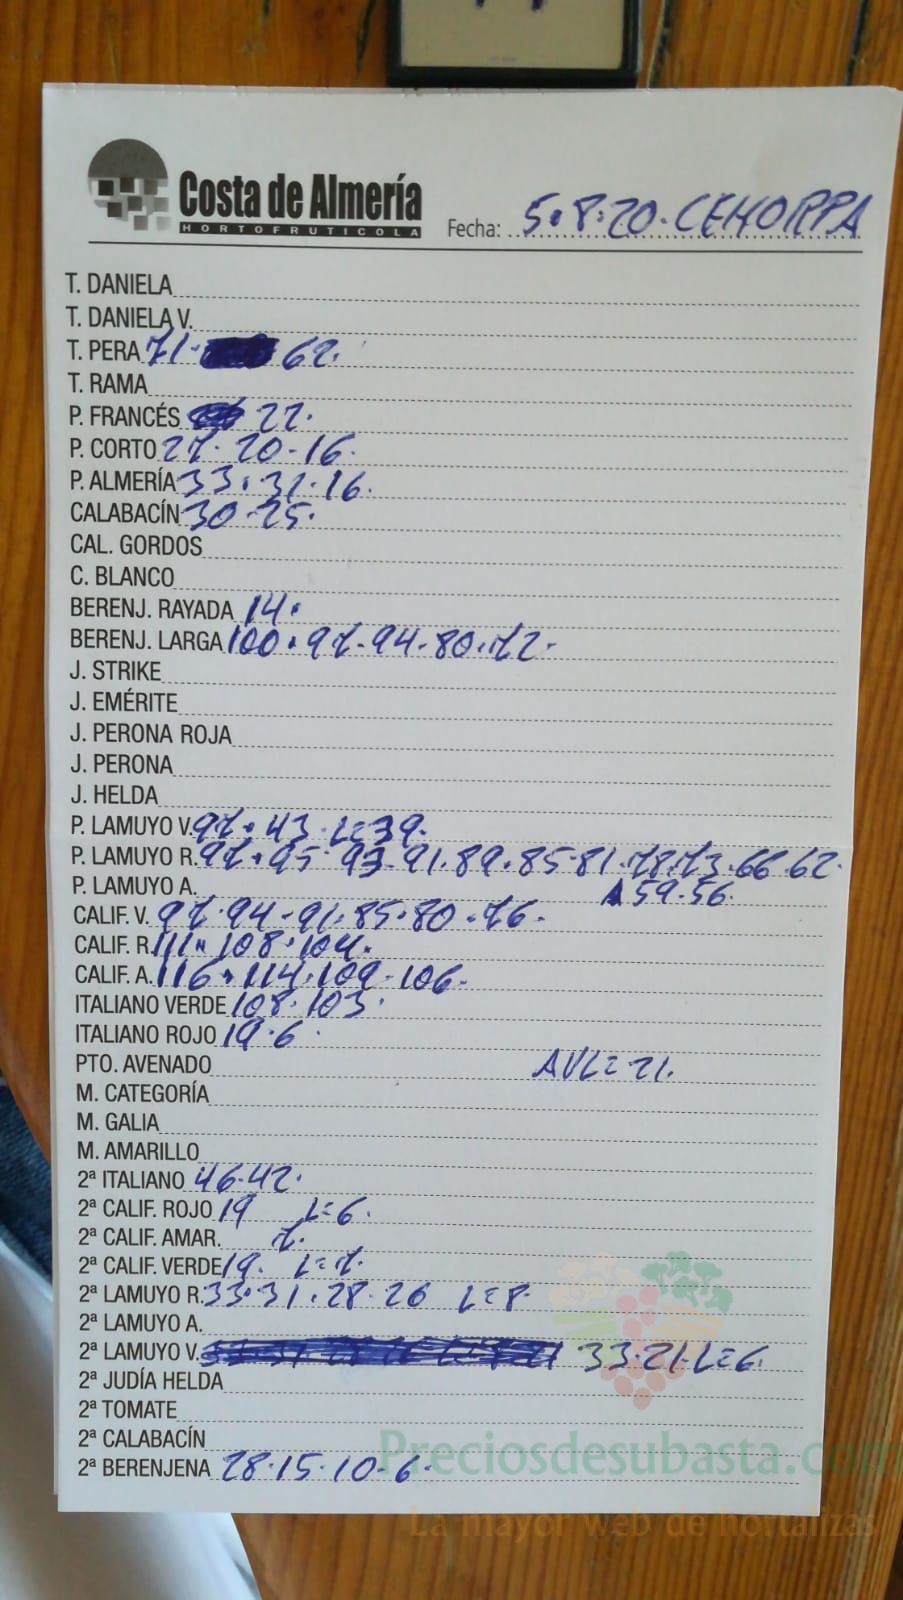 Costa de Almería
HORTOFRUTICOLA
Fecha: 5.8.20. CEHORPPA
T. DANIELA
T. DANIELA V.
T. PERA 71. 62.
T. RAMA
P. FRANCÉS 22.
P. CORTO 27. 20.16.
P. ALMERÍA 33.31.16.
CALABACÍN 30.25.
CAL. GORDOS
C. BLANCO
BERENJ. RAYADA 14.
BERENJ. LARGA 100.97.94.80.72.
J. STRIKE
J. EMÉRITE
J. PERONA ROJA
J. PERONA
J. HELDA
P. LAMUYO V. 97.43.L=39.
P. LAMUYO R. 97.95.93.91.89.85.81.78.73.66.62.
P. LAMUYO A. 59.56.
CALIF. V. 97.94.91.85.80.76.
CALIF. R. 111.108.104.
CALIF. A. 116.114.109.106.
ITALIANO VERDE 108.103.
ITALIANO ROJO 19.6.
PTO. AVENADO AVL=21.
M. CATEGORÍA
M. GALIA
M. AMARILLO
2ª ITALIANO 46.42.
2ª CALIF. ROJO 19 L=6.
2ª CALIF. AMAR. 7.
2ª CALIF. VERDE 19. L=7.
2ª LAMUYO R. 33.31.28.26 L=8
2ª LAMUYO A.
2ª LAMUYO V. 33.21.L=6.
2ª JUDÍA HELDA
2ª TOMATE
2ª CALABACÍN
2ª BERENJENA 28.15.10.6.
Preciosdesubasta.com
La mayor web de hortalizas